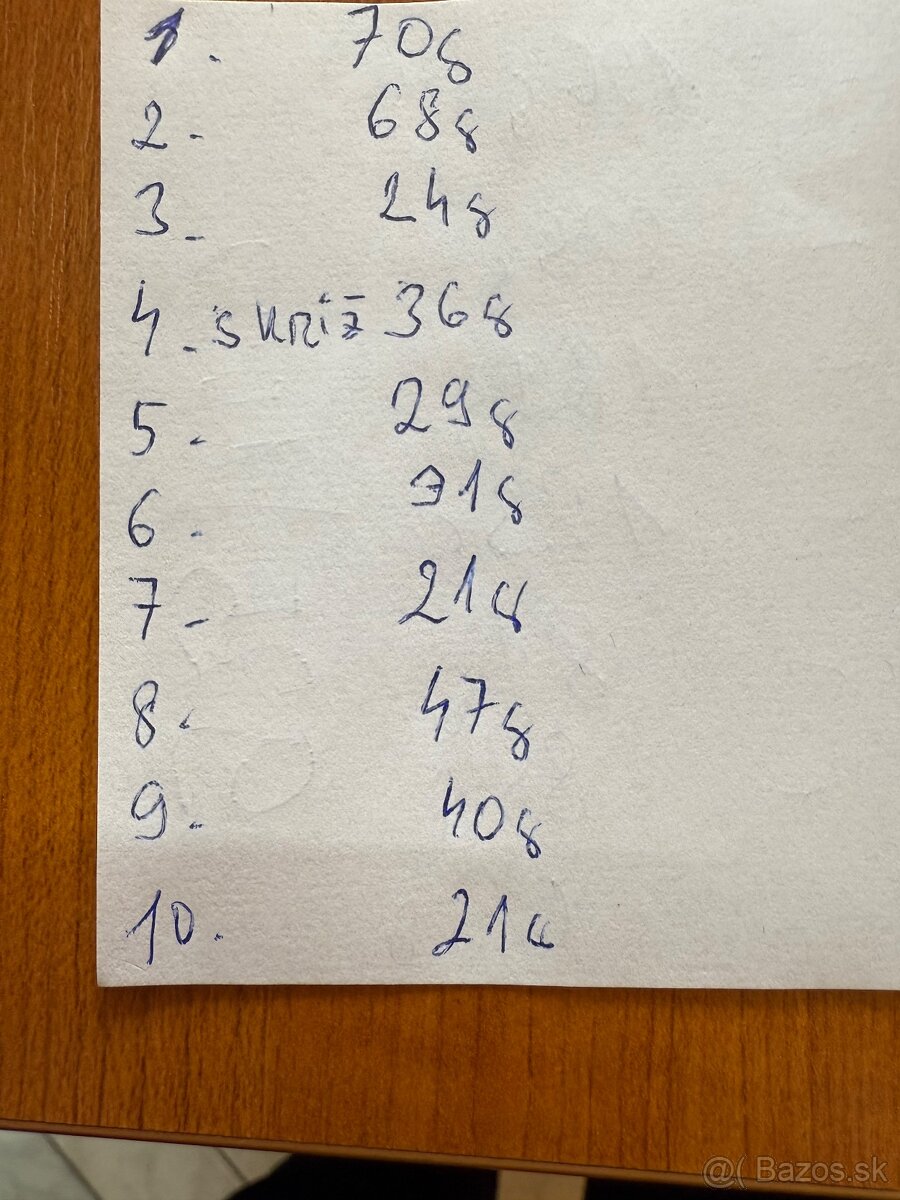 1. 70g
2. 68g
3. 24g
4. s kríž 36g
5. 29g
6. 71g
7. 21g
8. 47g
9. 40g
10. 21g
@( Bazos.sk